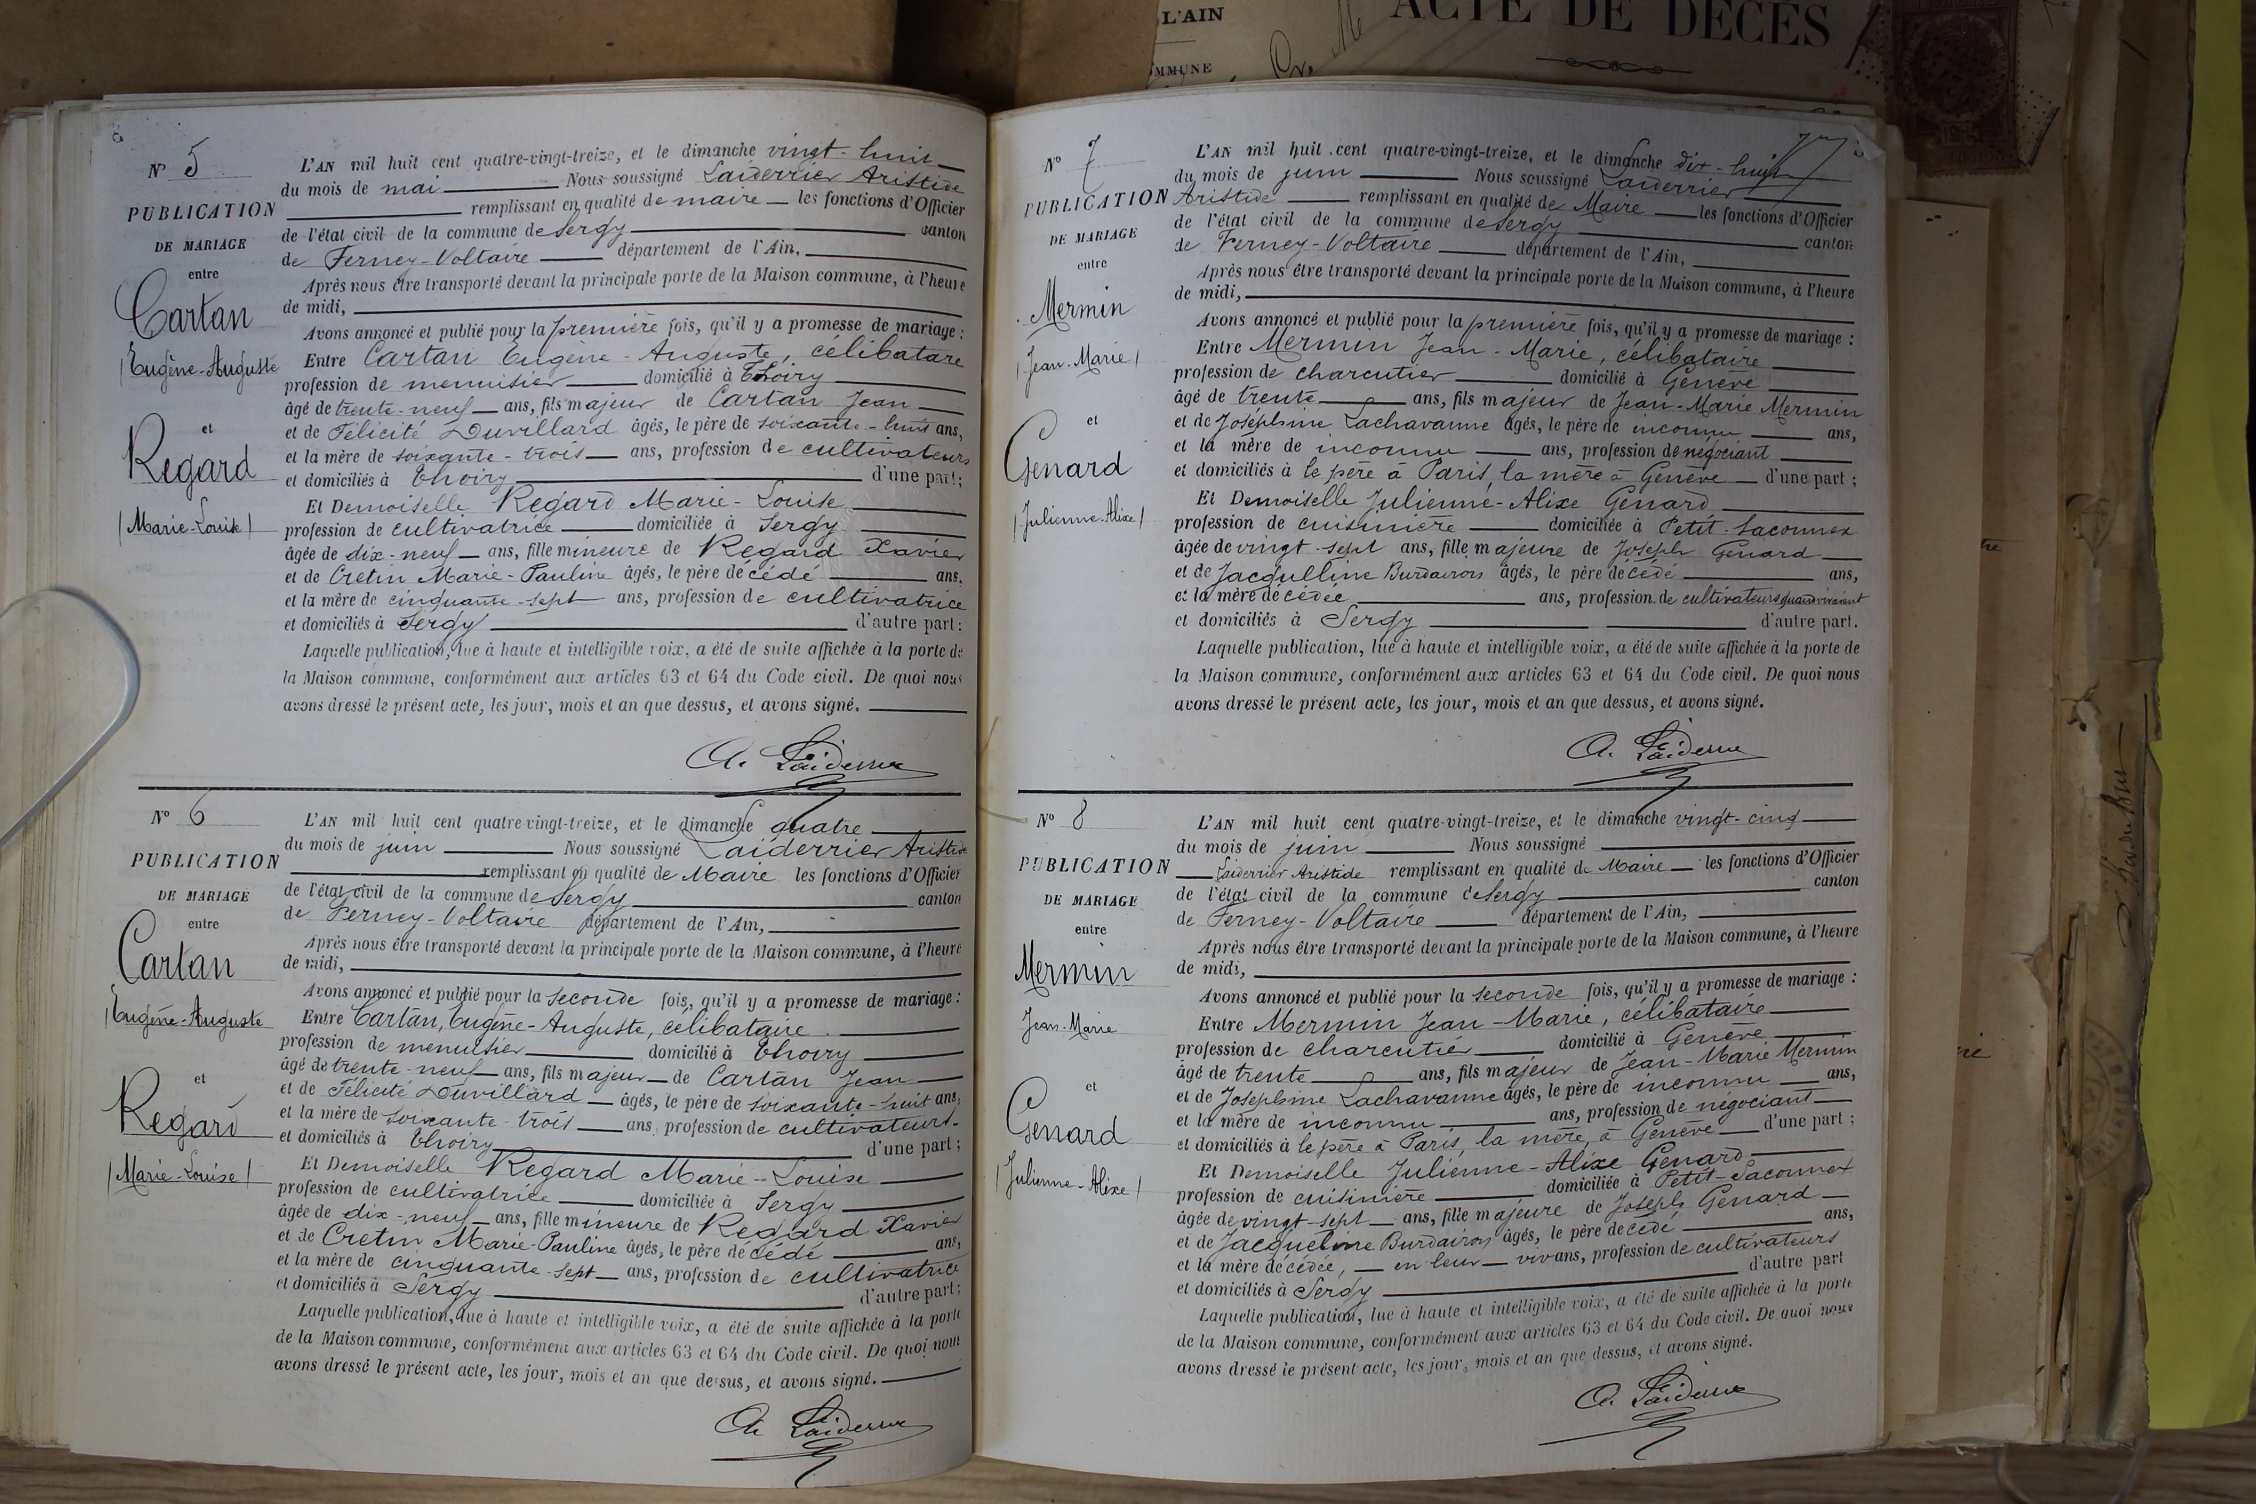 L'AIN
MMUNE
ACTE DE DÉCÈS
N° 5
PUBLICATION
DE MARIAGE
entre
Cartan
(Eugène-Auguste
et
Regard
(Marie-Louise)
L'AN mil huit cent quatre-vingt-treize, et le dimanche vingt-huit
du mois de mai Nous soussigné Laiderrier Aristide
remplissant en qualité de maire les fonctions d'Officier
de l'état civil de la commune de Sergy canton
de Ferney-Voltaire département de l'Ain,
Après nous être transporté devant la principale porte de la Maison commune, à l'heure
de midi,
Avons annoncé et publié pour la première fois, qu'il y a promesse de mariage :
Entre Cartan Eugène-Auguste, célibatare
profession de menuisier domicilié à Thoiry
âgé de trente-neuf ans, fils majeur de Cartan Jean
et de Félicité Duvillard âgés, le père de soixante-huit ans,
et la mère de soixante-trois ans, profession de cultivateurs
et domiciliés à Thoiry d'une part;
Et Demoiselle Regard Marie-Louise
profession de cultivatrice domiciliée à Sergy
âgée de dix-neuf ans, fille mineure de Regard Xavier
et de Cretin Marie-Pauline âgés, le père décédé ans.
et la mère de cinquante-sept ans, profession de cultivatrice
et domiciliés à Sergy d'autre part:
Laquelle publication, lue à haute et intelligible voix, a été de suite affichée à la porte de
la Maison commune, conformément aux articles 63 et 64 du Code civil. De quoi nous
avons dressé le présent acte, les jour, mois et an que dessus, et avons signé.
A. Laiderrier
N° 6
PUBLICATION
DE MARIAGE
entre
Cartan
(Eugène-Auguste
et
Regard
(Marie-Louise)
L'AN mil huit cent quatre-vingt-treize, et le dimanche quatre
du mois de juin Nous soussigné Laiderrier Aristide
remplissant en qualité de Maire les fonctions d'Officier
de l'état civil de la commune de Sergy canton
de Ferney-Voltaire département de l'Ain,
Après nous être transporté devant la principale porte de la Maison commune, à l'heure
de midi,
Avons annoncé et publié pour la seconde fois, qu'il y a promesse de mariage :
Entre Cartan, Eugène-Auguste, célibataire
profession de menuisier domicilié à Thoiry
âgé de trente-neuf ans, fils majeur de Cartan Jean
et de Félicité Duvillard âgés, le père de soixante-huit ans,
et la mère de soixante-trois ans, profession de cultivateurs.
et domiciliés à Thoiry d'une part ;
Et Demoiselle Regard Marie-Louise
profession de cultivatrice domiciliée à Sergy
âgée de dix-neuf ans, fille mineure de Regard Xavier
et de Cretin Marie-Pauline âgés, le père décédé ans,
et la mère de cinquante-sept ans, profession de cultivatrice
et domiciliés à Sergy d'autre part;
Laquelle publication, lue à haute et intelligible voix, a été de suite affichée à la porte
de la Maison commune, conformément aux articles 63 et 64 du Code civil. De quoi nous
avons dressé le présent acte, les jour, mois et an que dessus, et avons signé.
A. Laiderrier
N° 7
PUBLICATION
DE MARIAGE
entre
Mermin
(Jean-Marie)
et
Genard
(Julienne-Alixe)
L'AN mil huit cent quatre-vingt-treize, et le dimanche dix-huit
du mois de juin Nous soussigné Laiderrier
Aristide remplissant en qualité de Maire les fonctions d'Officier
de l'état civil de la commune de Sergy canton
de Ferney-Voltaire département de l'Ain,
Après nous être transporté devant la principale porte de la Maison commune, à l'heure
de midi,
Avons annoncé et publié pour la première fois, qu'il y a promesse de mariage :
Entre Mermin Jean-Marie, célibataire
profession de charcutier domicilié à Genève
âgé de trente ans, fils majeur de Jean-Marie Mermin
et de Joséphine Lachavanne âgés, le père de inconnu ans,
et la mère de inconnu ans, profession de négociant
et domiciliés à le père à Paris, la mère à Genève d'une part ;
Et Demoiselle Julienne-Alixe Genard
profession de cuisinière domiciliée à Petit-Saconnex
âgée de vingt-sept ans, fille majeure de Joseph Genard
et de Jacqulline Burdairon âgés, le père décédé ans,
et la mère décédée ans, profession de cultivateurs quand vivaient
et domiciliés à Sergy d'autre part.
Laquelle publication, lue à haute et intelligible voix, a été de suite affichée à la porte de
la Maison commune, conformément aux articles 63 et 64 du Code civil. De quoi nous
avons dressé le présent acte, les jour, mois et an que dessus, et avons signé.
A. Laiderrier
N° 8
PUBLICATION
DE MARIAGE
entre
Mermin
Jean-Marie
et
Genard
(Julienne-Alixe)
L'AN mil huit cent quatre-vingt-treize, et le dimanche vingt-cinq
du mois de juin Nous soussigné
Laiderrier Aristide remplissant en qualité de Maire les fonctions d'Officier
de l'état civil de la commune de Sergy canton
de Ferney-Voltaire département de l'Ain,
Après nous être transporté devant la principale porte de la Maison commune, à l'heure
de midi,
Avons annoncé et publié pour la seconde fois, qu'il y a promesse de mariage :
Entre Mermin Jean-Marie, célibataire
profession de charcutier domicilié à Genève
âgé de trente ans, fils majeur de Jean-Marie Mermin
et de Joséphine Lachavanne âgés, le père de inconnu ans,
et la mère de inconnu ans, profession de négociant
et domiciliés à le père à Paris, la mère, à Genève d'une part ;
Et Demoiselle Julienne-Alixe Genard
profession de cuisinière domiciliée à Petit-Saconnex
âgée de vingt-sept ans, fille majeure de Joseph Genard
et de Jacqueline Burdairon âgés, le père décédé ans,
et la mère décédée, en leur vivans, profession de cultivateurs
et domiciliés à Sergy d'autre part
Laquelle publication, lue à haute et intelligible voix, a été de suite affichée à la porte
de la Maison commune, conformément aux articles 63 et 64 du Code civil. De quoi nous
avons dressé le présent acte, les jour, mois et an que dessus, et avons signé.
A. Laiderrier